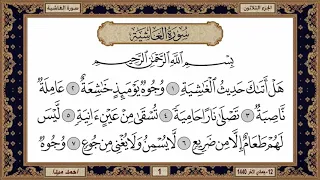 سورة الغاشية
الجزء الثلاثون
سُورَةُ الغَاشِيَةِ
بِسْمِ اللَّهِ الرَّحْمَٰنِ الرَّحِيمِ
هَلْ أَتَىٰكَ حَدِيثُ الْغَٰشِيَةِ ١ وُجُوهٌ يَوْمَئِذٍ خَٰشِعَةٌ ٢ عَامِلَةٌ
نَّاصِبَةٌ ٣ تَصْلَىٰ نَارًا حَامِيَةً ٤ تُسْقَىٰ مِنْ عَيْنٍ ءَانِيَةٍ ٥ لَّيْسَ
لَهُمْ طَعَامٌ إِلَّا مِن ضَرِيعٍ ٦ لَّا يُسْمِنُ وَلَا يُغْنِي مِن جُوعٍ ٧ وُجُوهٌ
12- جمادى الآخر 1440
1